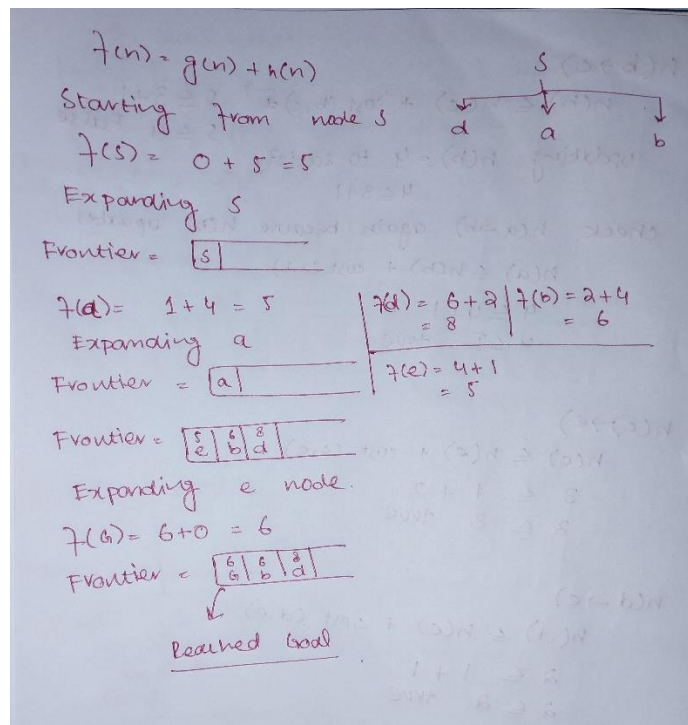 f(n) = g(n) + h(n)
S
d a b
Starting from node S
f(s) = 0 + 5 = 5
Expanding S
Frontier = S
f(a) = 1 + 4 = 5
f(d) = 6 + 2 = 8
f(b) = 2 + 4 = 6
Expanding a
Frontier = a
f(e) = 4 + 1 = 5
Frontier = 5 e 6 b 8 d
Expanding e node.
f(G) = 6 + 0 = 6
Frontier = 6 G 6 b 8 d
Reached Goal